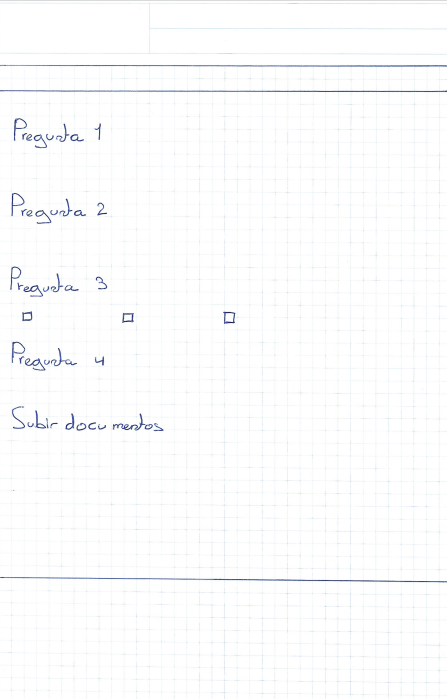 Pregunta 1
Pregunta 2
Pregunta 3
Pregunta 4
Subir documentos